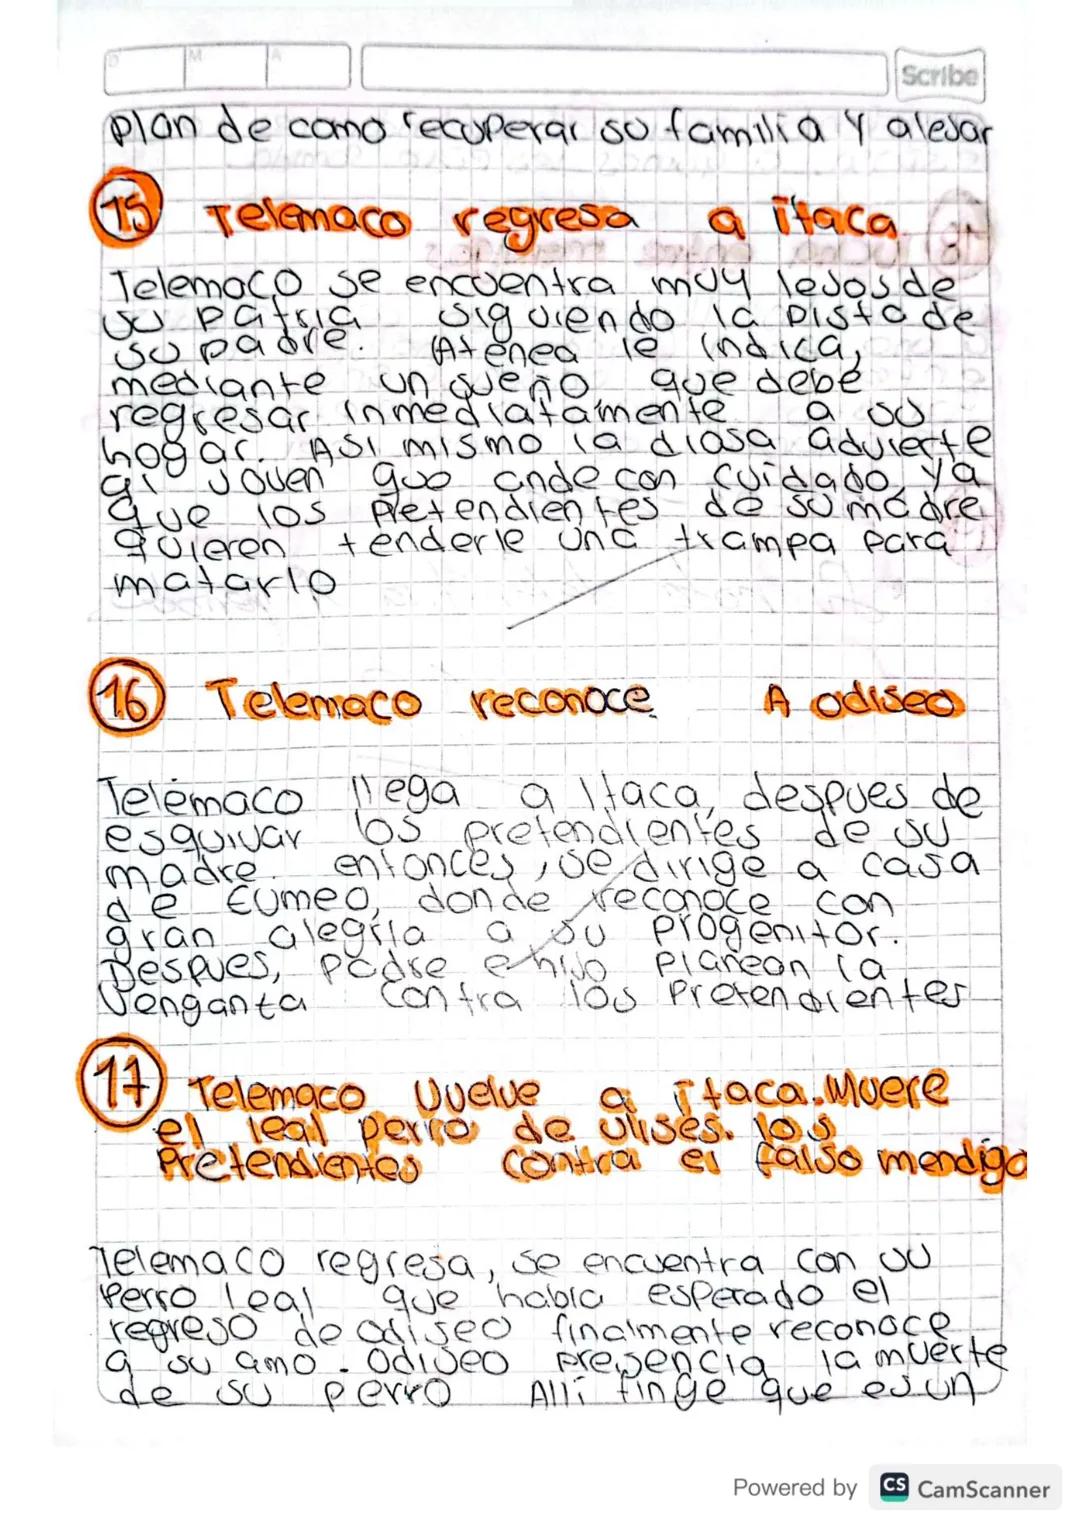 D M A Scribe
plan de como recuperar su familia y alejar
15 Telemaco regresa a itaca
Telemaco se encuentra muy lejos de
su patria siguiendo la pista de
su padre. Atenea le indica,
mediante un sueño que debe
regresar inmediatamente a su
hogar. Asi mismo la diosa advierte
al joven que ande con cuidado, ya
que los pretendientes de su madre
quieren tenderle una trampa para
matarlo
16 Telemaco reconoce A odiseo
Telemaco llega a Itaca, despues de
esquivar los pretendientes de su
madre. entonces, se dirige a casa
de Eumeo, donde reconoce con
gran alegria a su progenitor.
Despues, padre e hijo planean la
venganta contra los pretendientes
17 Telemaco Vuelve a itaca. Muere
el leal perro de ulises. los
pretendientes contra el falso mendigo
Telemaco regresa, se encuentra con su
perro leal que habia esperado el
regreso de odiseo finalmente reconoce
a su amo. Odiseo presencia la muerte
de su perro Alli finge que es un
Powered by CS CamScanner